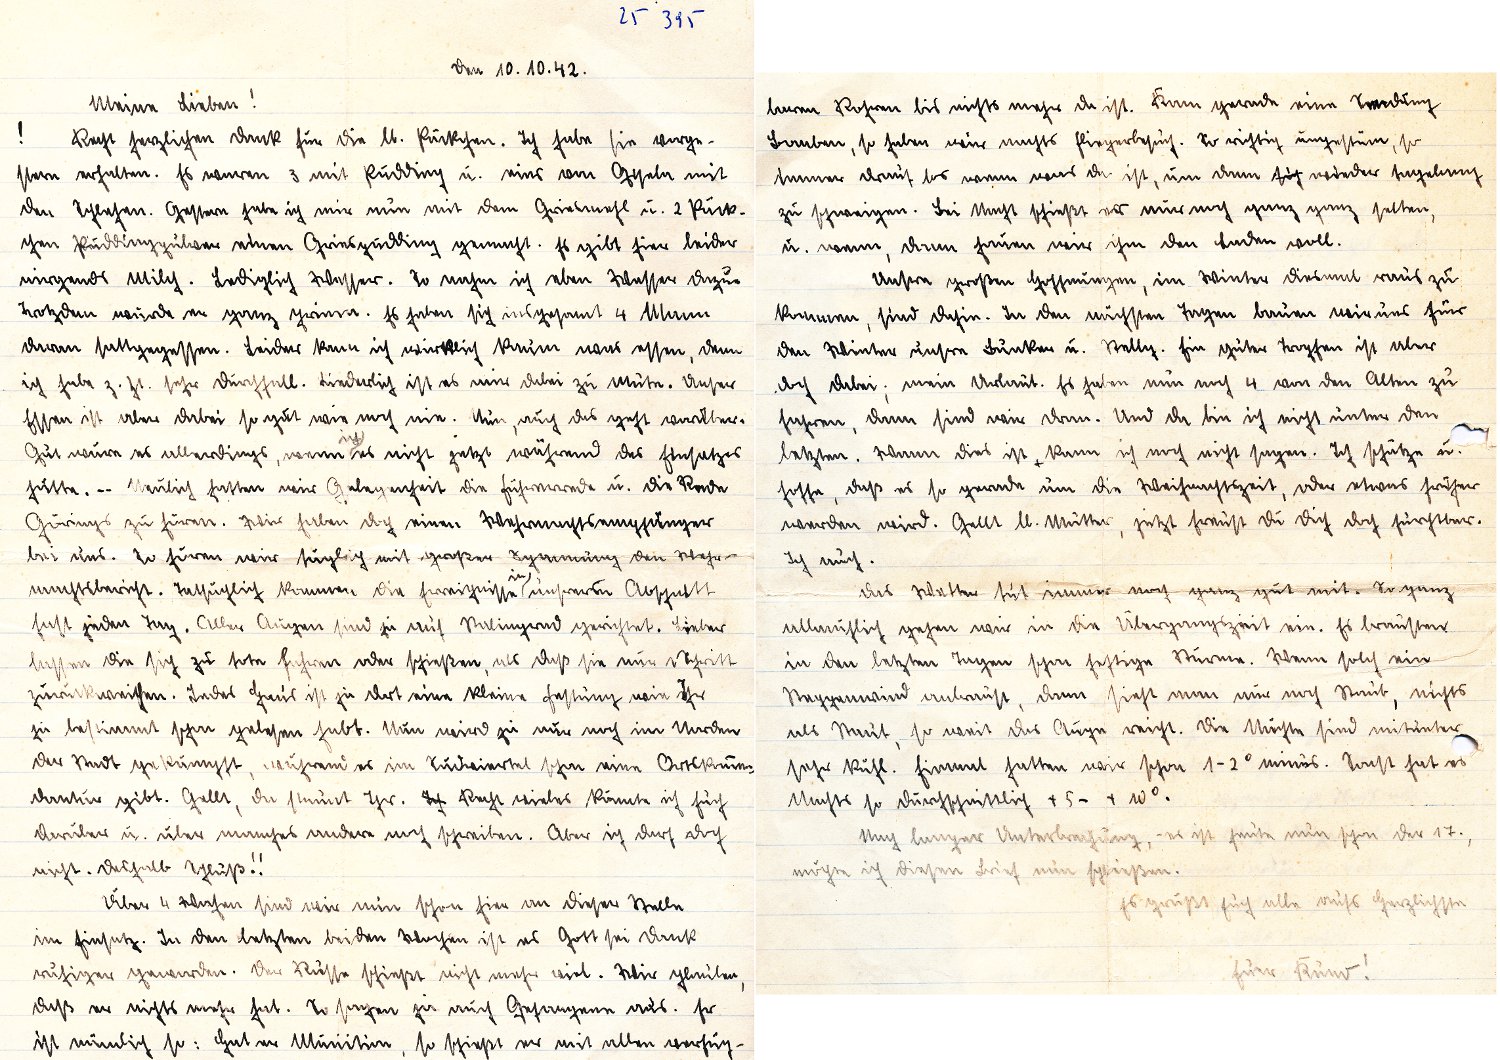 25 395
Den 10.10.42.
Meine Lieben!
! Recht herzlichen Dank für die lb. Päckchen. Ich habe sie vorge-
stern erhalten. Es waren 3 mit Pudding u. eins von Gisela mit
den Schlehen. Gestern habe ich mir nun mit dem Griesmehl u. 2 Päck-
chen Puddingpulver einen Griespudding gemacht. Es gibt hier leider
nirgends Milch. Lediglich Wasser. So nahm ich eben Wasser dazu.
Trotzdem wurde er ganz prima. Es haben sich insgesamt 4 Mann
daran sattgegessen. Leider kann ich wirklich kaum was essen, denn
ich habe z. Zt. sehr Durchfall. Liederlich ist es mir dabei zu Mute. Unser
Essen ist aber dabei so gut wie noch nie. Nun, auch das geht vorüber.
Gut wäre es allerdings, wenn ich es nicht jetzt während des Einsatzes
hätte. -- Neulich hatten wir Gelegenheit die Führerrede u. die Rede
Görings zu hören. Wir haben doch einen Wehrmachtsempfänger
bei uns. So hören wir täglich mit großer Spannung den Wehr-
machtsbericht. Tatsächlich kommen die Ereignisse in unserem Abschnitt
fast jeden Tag. Aller Augen sind ja auf Stalingrad gerichtet. Lieber
lassen die sich zu tote fahren oder schießen, als daß sie nur 1 Schritt
zurückweichen. Jedes Haus ist ja dort eine kleine Festung wie Ihr
ja bestimmt schon gelesen habt. Nun wird ja nur noch im Norden
der Stadt gekämpft, während es im Südviertel schon eine Ortskomman-
dantur gibt. Gellt, da staunt Ihr. Recht vieles könnte ich Euch
darüber u. über manches andere noch schreiben. Aber ich darf doch
nicht. Deshalb Schluß!!
Über 4 Wochen sind wir nun schon hier an dieser Stelle
im Einsatz. In den letzten beiden Wochen ist es Gott sei Dank
ruhiger geworden. Der Russe schießt nicht mehr viel. Wir glauben,
daß er nichts mehr hat. So sagen ja auch Gefangene aus. Er
ist nämlich so: Hat er Munition, so schießt er mit allen verfüg-
baren Rohren bis nichts mehr da ist. Kam gerade eine Sendung
Bomben, so haben wir nachts Fliegerbesuch. So richtig ungestüm, so
immer drauf los wenn was da ist, um dann wieder tagelang
zu schweigen. Bei Nacht schießt er nur noch ganz ganz selten,
u. wenn, dann hauen wir ihm den Laden voll.
Unsre großen Hoffnungen, im Winter diesmal raus zu
kommen, sind dahin. In den nächsten Tagen bauen wir uns für
den Winter unsre Bunker u. Stellg. Ein guter Tropfen ist aber
doch dabei; mein Urlaub. Es haben nun noch 4 von den Alten zu
fahren, dann sind wir dran. Und da bin ich nicht unter den
letzten. Wann dies ist, kann ich noch nicht sagen. Ich schätze u.
hoffe, daß es so gerade um die Weihnachtszeit, oder etwas früher
werden wird. Gellt lb. Mutter, jetzt freust Du Dich doch furchtbar.
Ich auch.
Das Wetter tut immer noch ganz gut mit. So ganz
allmählich gehen wir in die Übergangszeit ein. Es brausten
in den letzten Tagen schon heftige Stürme. Wenn solch ein
Steppenwind anbraust, dann sieht man nur noch Staub, nichts
als Staub, so weit das Auge reicht. Die Nächte sind mitunter
sehr kühl. Einmal hatten wir schon 1-2° minus. Sonst hat es
Nachts so durchschnittlich +5- +10°.
Nach langer Unterbrechung, - es ist heute nun schon der 17.,
möchte ich diesen Brief nun schließen.
Es grüßt Euch alle aufs Herzlichste
Euer Kuno!